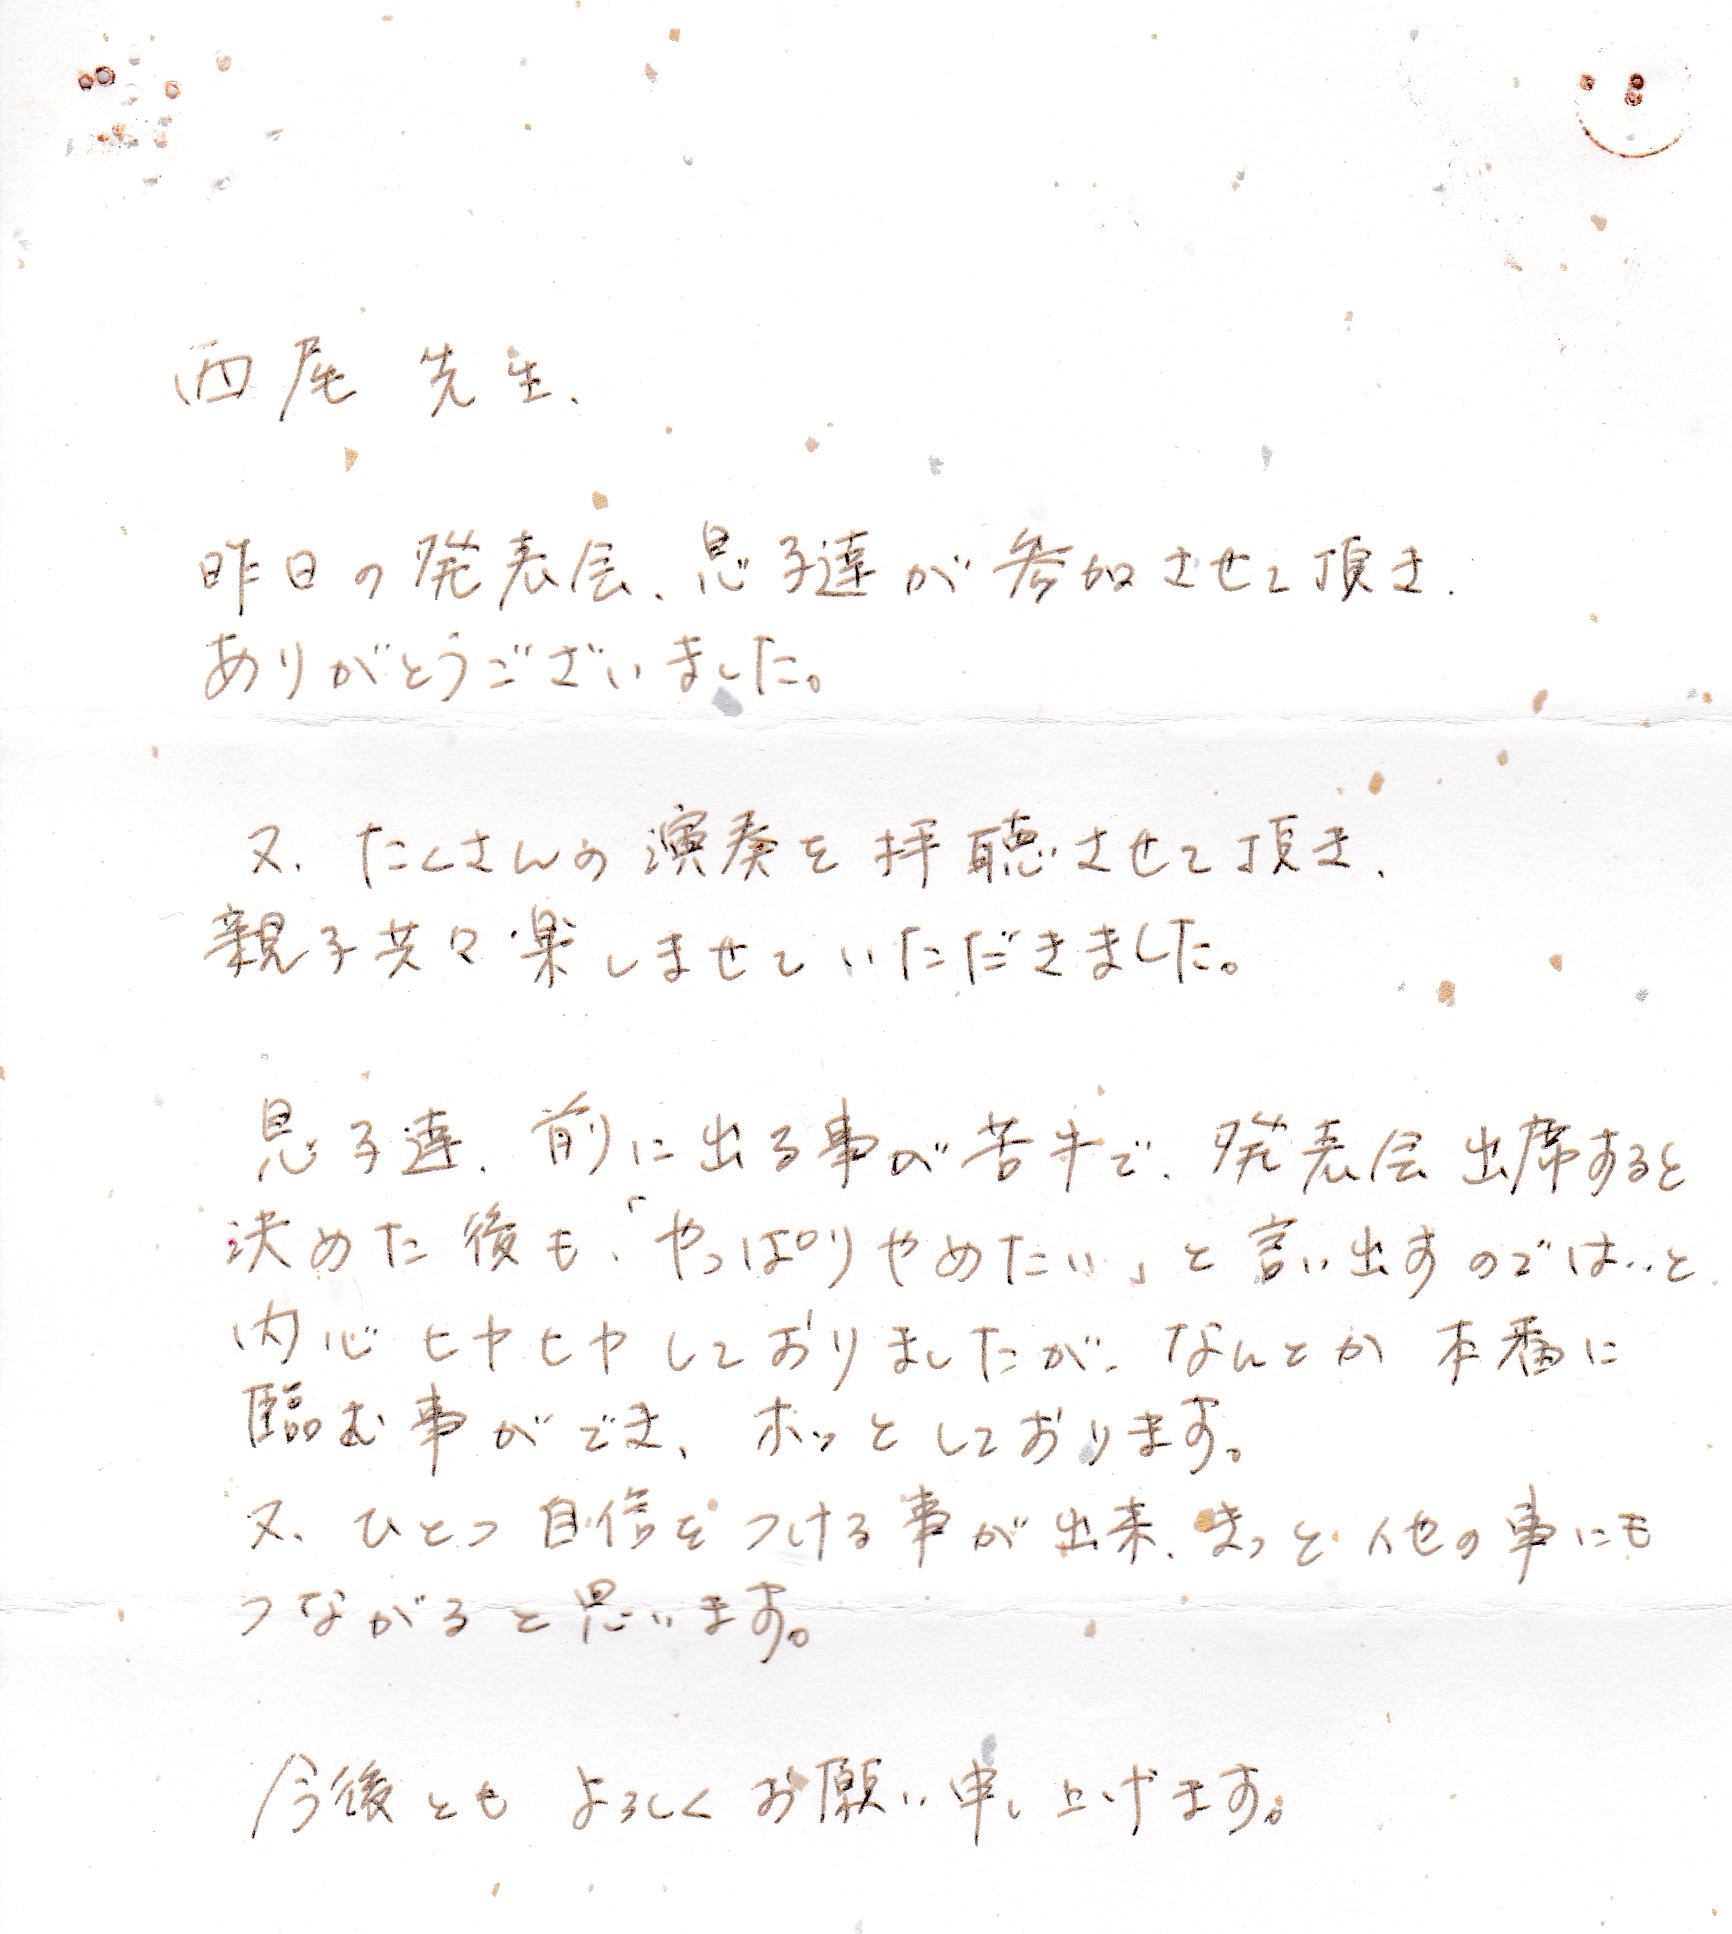 西尾 先生、
昨日の発表会、息子達が参加させて頂き、
ありがとうございました。
又、たくさんの演奏を拝聴させて頂き、
親子共々楽しませていただきました。
息子達、前に出る事が苦手で、発表会出席すると
決めた後も、「やっぱりやめたい」と言い出すのでは‥と
内心ヒヤヒヤしておりましたが、なんとか本番に
臨む事ができ、ホッとしております。
又、ひとつ自信をつける事が出来、きっと他の事にも
つながると思います。
今後ともよろしくお願い申し上げます。